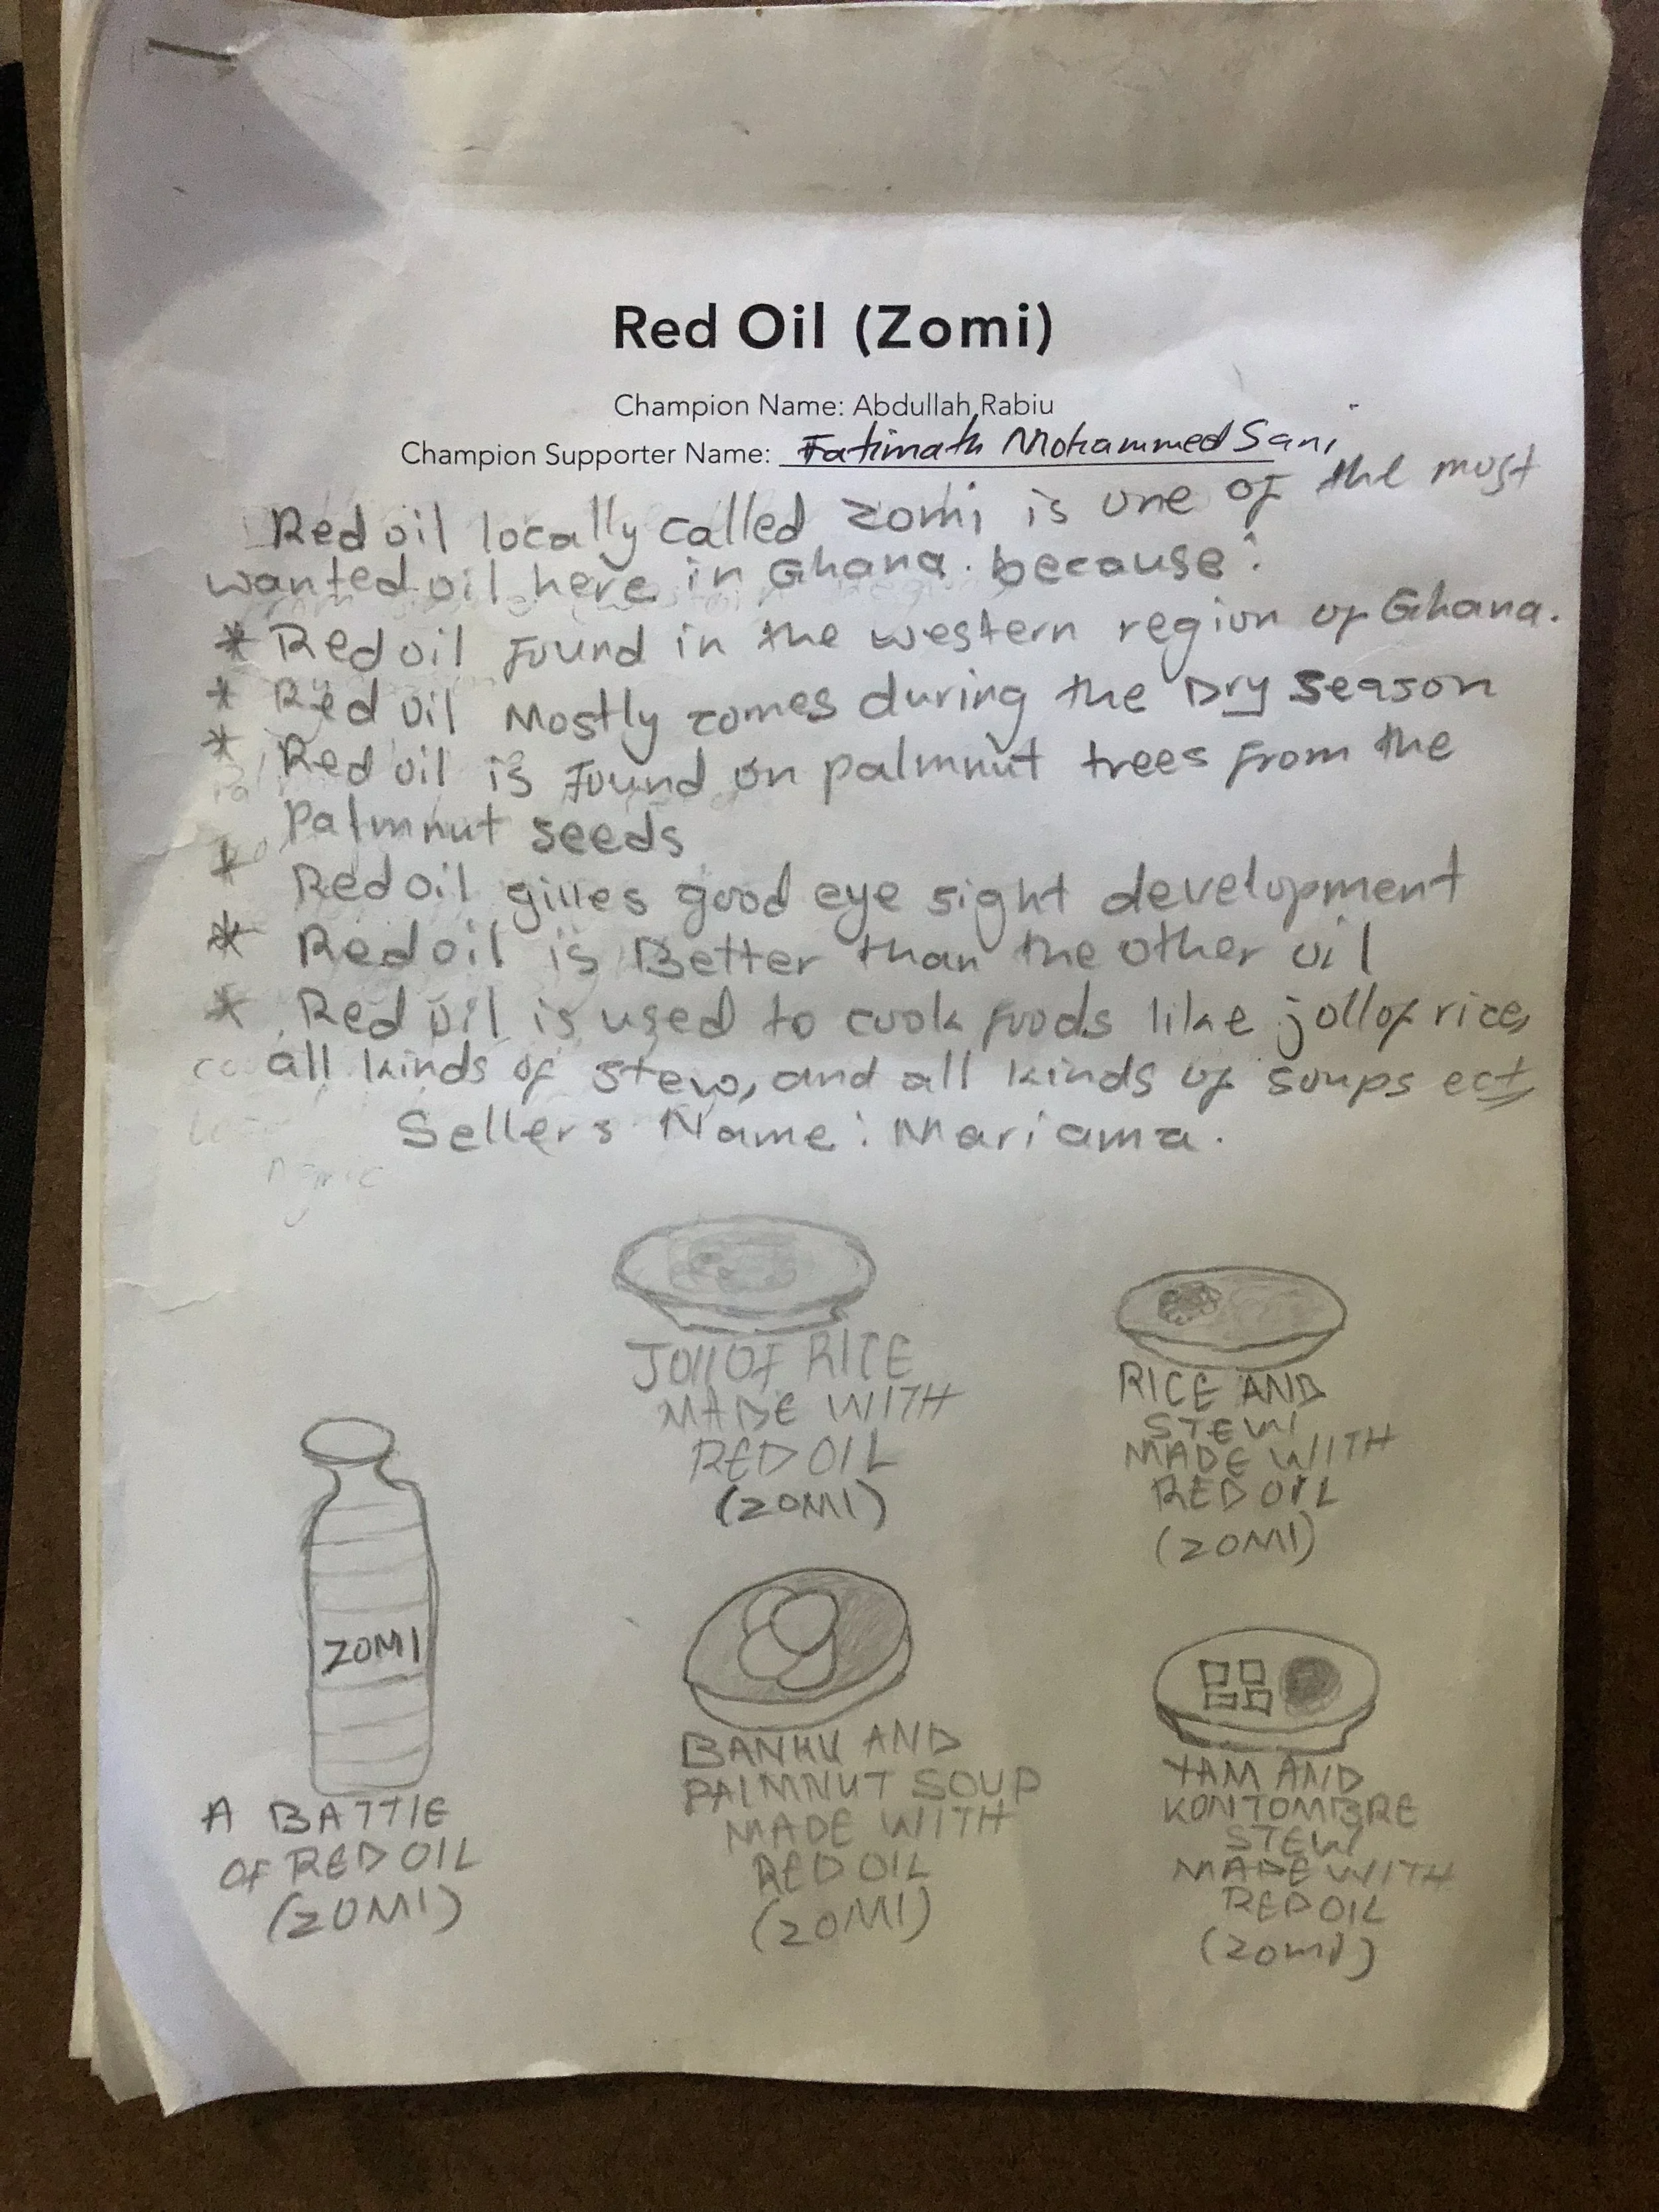 Red Oil (Zomi)
Champion Name: Abdullah Rabiu
Champion Supporter Name: Fatimath Mohammed Sani
Red oil locally called zomi is one of the most
wanted oil here in Ghana. because:
* Red oil Found in the western region of Ghana.
* Red oil Mostly comes during the Dry season
* Red oil is Found on palmnut trees from the
palmnut seeds
* Red oil gives good eye sight development
* Red oil is Better than the other oil
* Red oil is used to cook foods like jollof rice,
all kinds of stew, and all kinds of soups ect,
Sellers Name: Mariama.
JollOf RICE
MADE WITH
RED OIL
(ZOMI)
RICE AND
STEW
MADE WITH
RED OIL
(ZOMI)
ZOMI
A BATTlE
OF RED OIL
(ZOMI)
BANKU AND
PALMNUT SOUP
MADE WITH
RED OIL
(ZOMI)
YAM AND
KONTOMBRE
STEW
MADE WITH
RED OIL
(zomi)